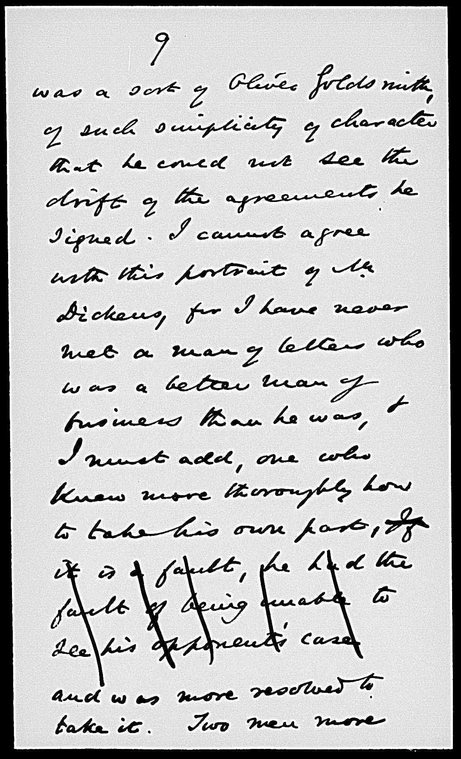 9
was a sort of Oliver Goldsmith,
of such simplicity of character
that he could not see the
drift of the agreements he
signed. I cannot agree
with this portrait of Mr
Dickens, for I have never
met a man of letters who
was a better man of
business than he was, &
I must add, one who
knew more thoroughly how
to take his own part, If
it is a fault, he had the
fault of being unable to
see his opponent's case
and was more resolved to
take it. Two men more